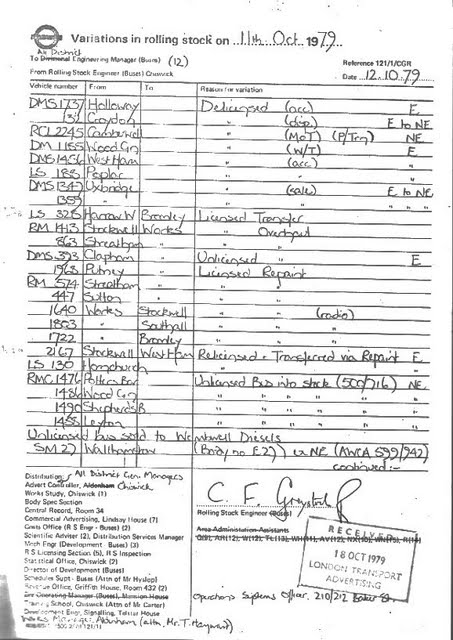 Variations in rolling stock on 11th Oct 1979
All District
To Divisional Engineering Manager (Buses) (12)
Reference 121/1/CGR
From Rolling Stock Engineer (Buses) Chiswick
Date 12.10.79
Vehicle number From To Reason for variation
DMS1737 Holloway Delicensed (acc) E
Croydon " (disp) E to NE
RCL2245 Camberwell " (MoT) (P/Trng) NE
DM 1155 Wood Gn " (W/T) E
DMS1456 West Ham " (acc) "
LS 185 Poplar " "
DMS1347 Uxbridge " (sale) E to NE
1359 " " " "
LS 325 Harrow W Bromley Licensed Transfer
RM 1413 Stockwell Works " Overhaul
863 Streatham " "
DMS 393 Clapham Unlicensed " E
1963 Putney " Licensed Repaint
RM 574 Streatham " "
447 Sutton " "
1640 Works Stockwell " (radio)
1803 " Southall "
1722 " Bromley "
2167 Stockwell West Ham Relicensed & Transferred via Repaint E
LS 130 Hornchurch " "
RMC 1476 Potters Bar Unlicensed Bus into stock (500/716) NE
1486 Wood Gn " " " " "
1490 Shepherds B " " " " "
1455 Leyton " " " " "
Unlicensed bus sold to Wombwell Diesels
SM 27 Walthamstow (Body no E27) ex NE (AWCA 599/942)
continued:-
Distribution: All District Gen Managers
Advert Controller, Aldenham Chiswick
Works Study, Chiswick (1)
Body Spec Section
Central Record, Room 34
Commercial Advertising, Lindsay House (7)
Costs Office (R S Engr - Buses) (2)
Scientific Adviser (2), Distribution Services Manager
Mech Engr (Development - Buses) (3)
R S Licensing Section (5), R S Inspection
Statistical Office, Chiswick (2)
Director of Development (Buses)
Schedules Supt - Buses (Attn of Mr Hyslop)
Revenue Office, Griffith House, Room 432 (2)
Dir Operating Manager (Buses), Mansion House
Training School, Chiswick (Attn of Mr Carter)
Development Engr, Signalling, Telstar House
Works Manager, Aldenham (attn. Mr. T. Hayward)
C. F. Greystock
Rolling Stock Engineer (Buses)
Area Administration Assistants
Operating Systems Officer, 210/212
RECEIVED
18 OCT 1979
LONDON TRANSPORT
ADVERTISING